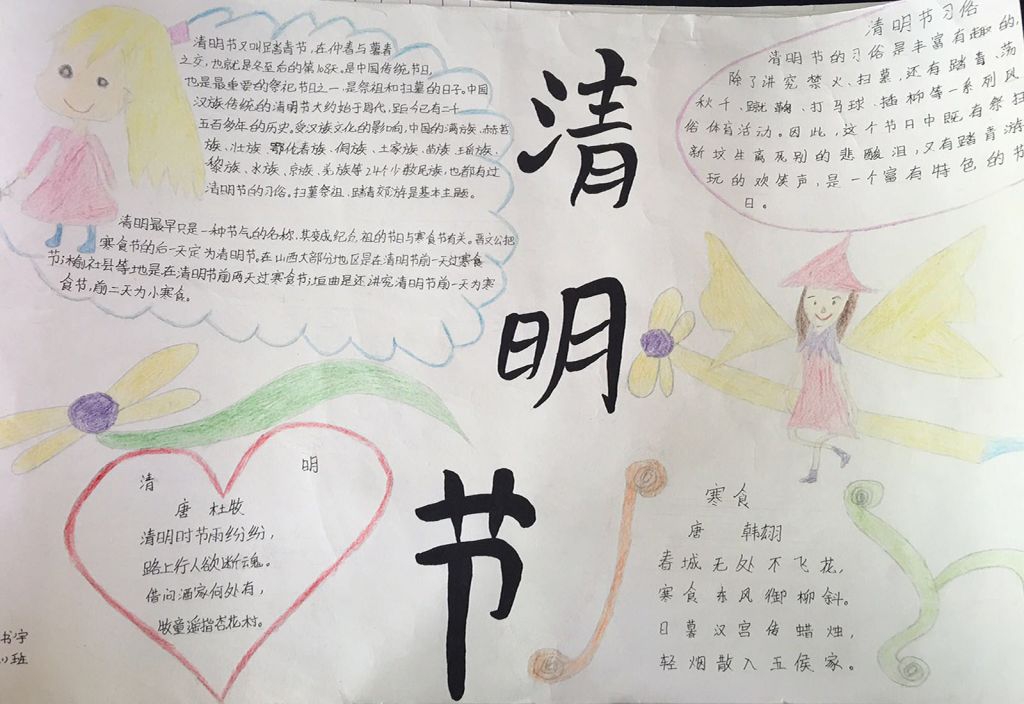 清明节
清明节又叫踏青节,在仲春与暮春
之交,也就是冬至后的第108天。是中国传统节日,
也是最重要的祭祀节日之一,是祭祖和扫墓的日子。中国
汉族传统的清明节大约始于周代,距今已有二千
五百多年的历史。受汉族文化的影响,中国的满族、赫哲
族、壮族、鄂伦春族、侗族、土家族、苗族、瑶族、
黎族、水族、京族、羌族等24个少数民族,也都有过
清明节的习俗。扫墓祭祖、踏青郊游是基本主题。
清明最早只是一种节气的名称,其变成纪念祖的节日与寒食节有关。晋文公把
寒食节的后一天定为清明节。在山西大部分地区是在清明节前一天过寒食
节;榆社县等地是在清明节前两天过寒食节;垣曲是还讲究清明节前一天为寒
食节,前二天为小寒食。
清明节习俗
清明节的习俗是丰富有趣的,
除了讲究禁火、扫墓,还有踏青、荡
秋千、蹴鞠、打马球、插柳等一系列风
俗体育活动。因此,这个节日中既有祭扫
新坟生离死别的悲酸泪,又有踏青游
玩的欢笑声,是一个富有特色的节
日。
清 明
唐 杜牧
清明时节雨纷纷,
路上行人欲断魂。
借问酒家何处有,
牧童遥指杏花村。
寒食
唐 韩翃
春城无处不飞花,
寒食东风御柳斜。
日暮汉宫传蜡烛,
轻烟散入五侯家。
书宇
班